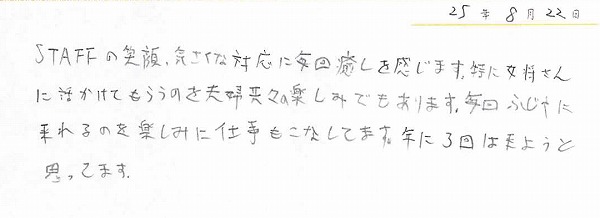 25年8月22日
STAFFの笑顔、気さくな対応に毎回癒しを感じます。特に女将さん
に話かけてもらうのを夫婦共々の楽しみでもあります。毎回ふじやに
来れるのを楽しみに仕事もこなしてます。年に3回は来ようと
思ってます。